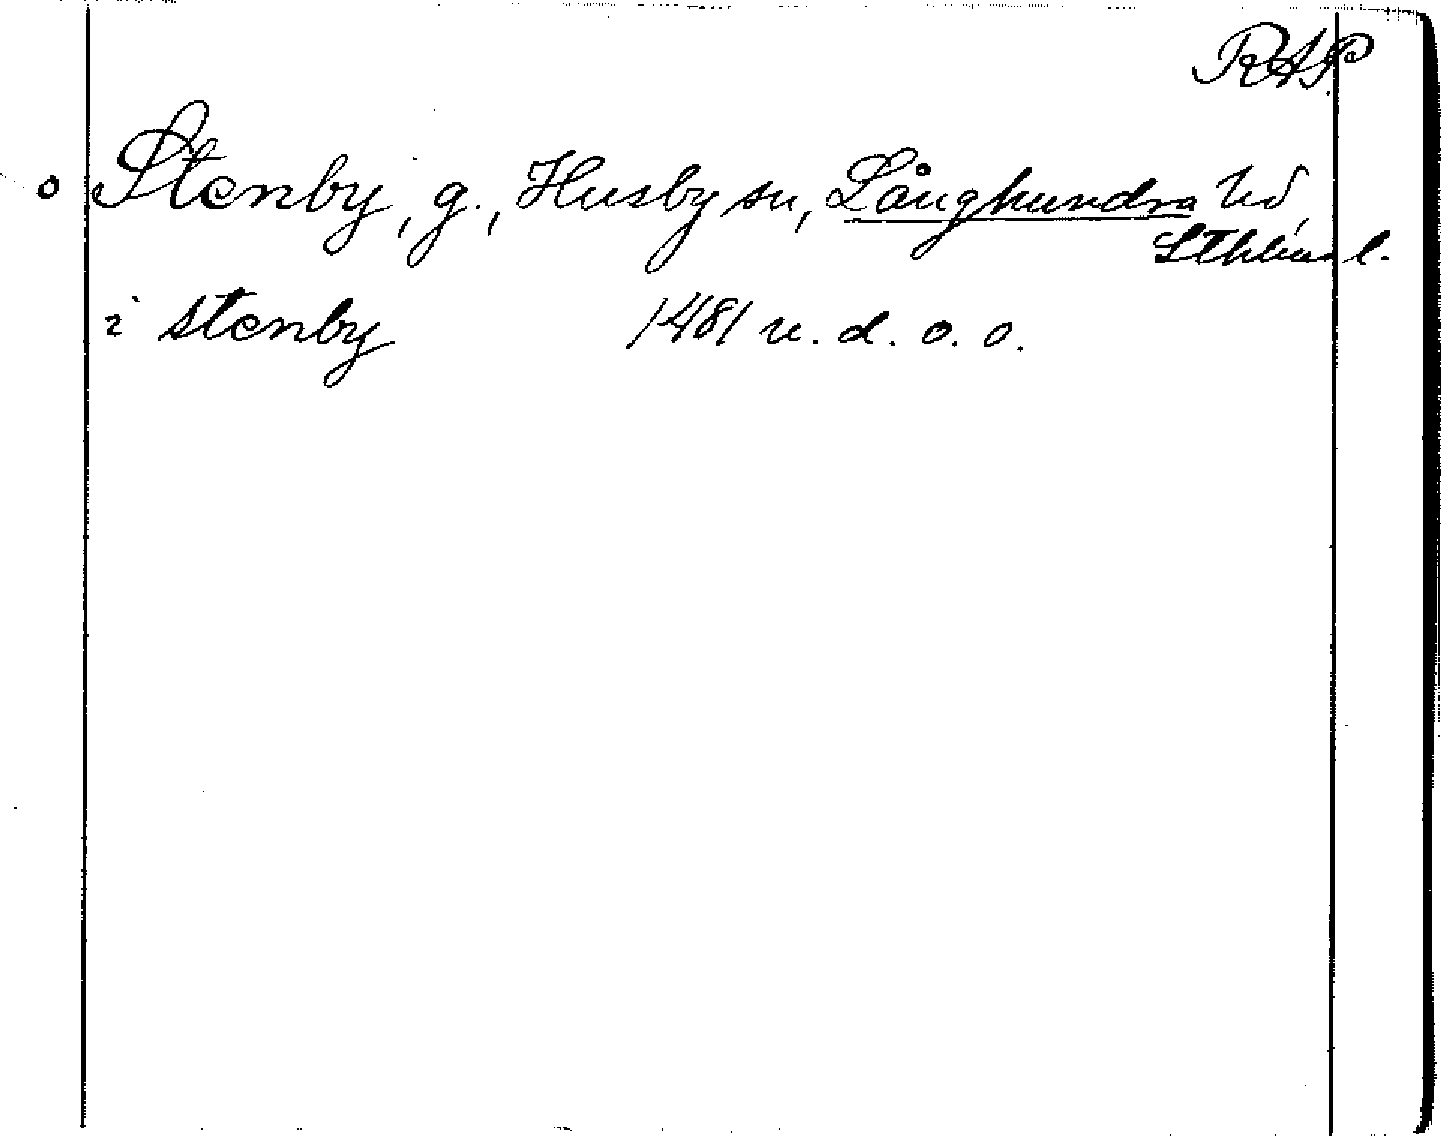 RAP.
o Stenby, g., Husby sn, Långhundra hd,
Sthlms l.
i stenby 1481 u. d. o. o.